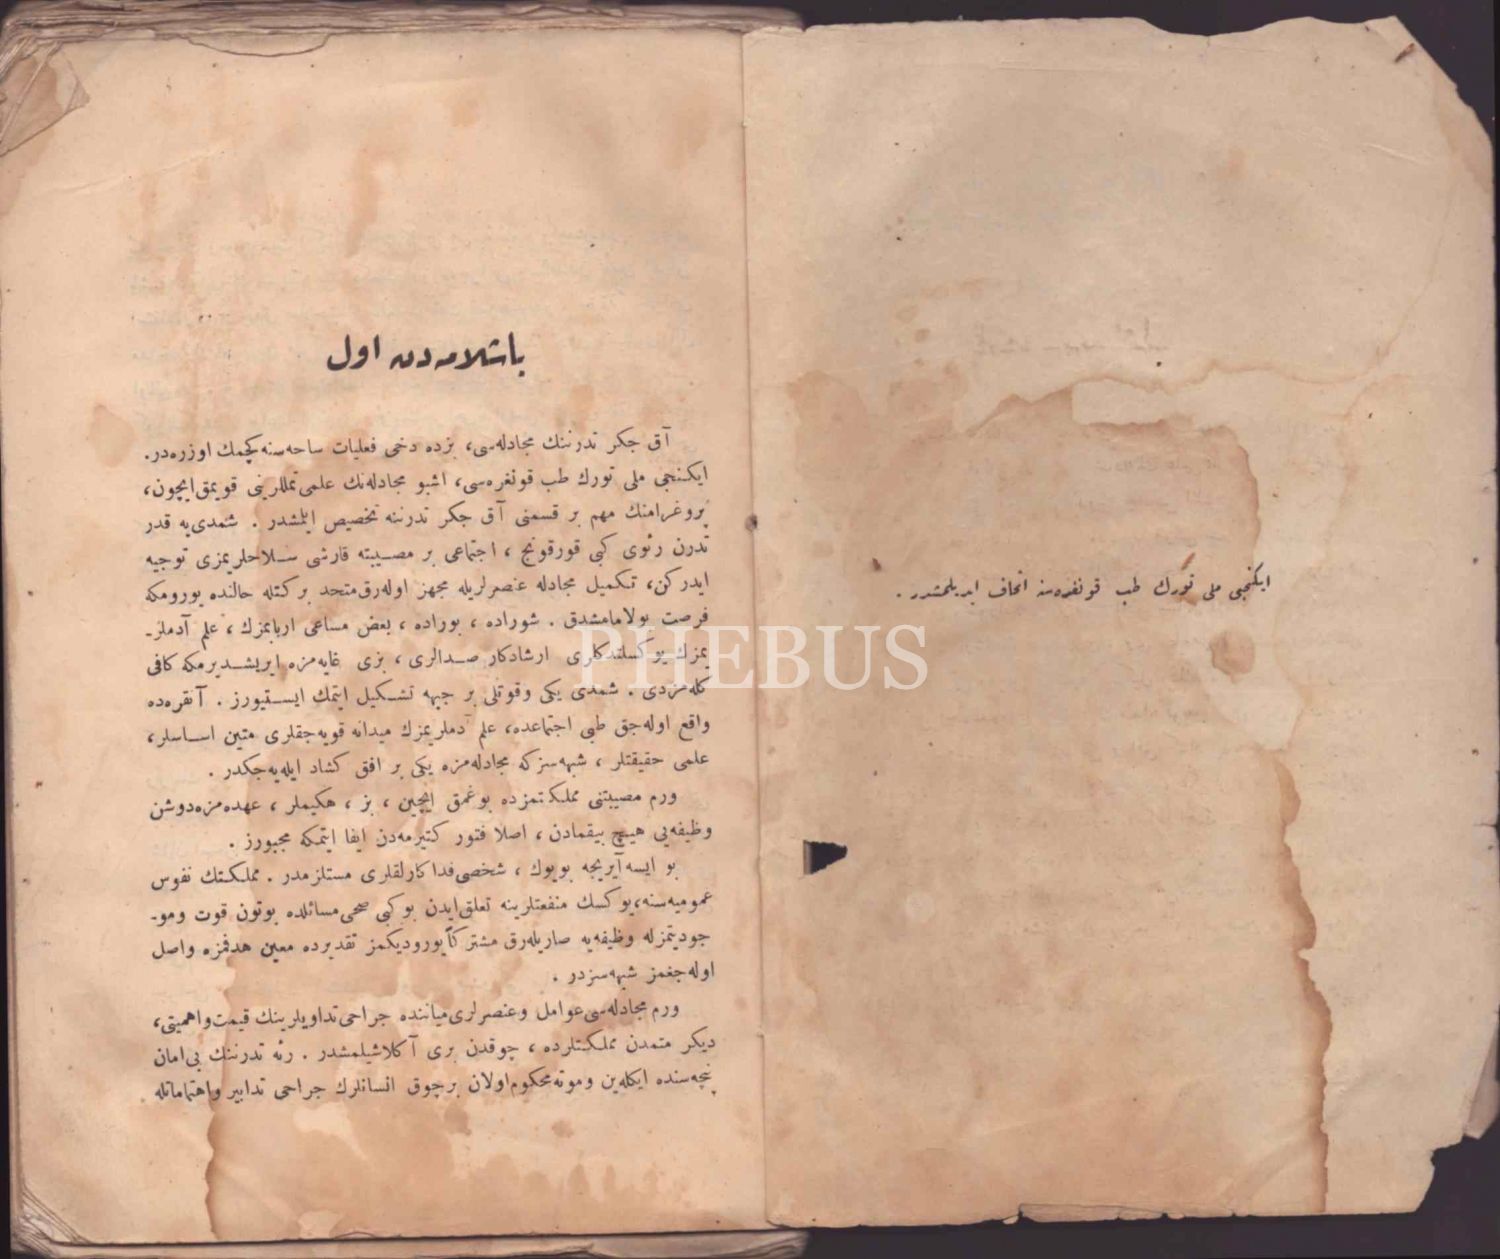 ایکنجی ملی تورك طب قونغره‌سنه اتحاف ایدیلمشدر .
باشلامه‌دن اول
آق جكر تدرننك مجادله‌سی، بزده دخی فعلیات ساحه‌سنه كچمك اوزره‌در.
ایكنجی ملی تورك طب قونغره‌سی، اشبو مجادله‌نك علمی تمللرینی قویمق ایچون،
پروغرامنك مهم بر قسمنی آق جكر تدرننه تخصیص ایلمشدر . شمدی‌یه قدر
تدرن رئوی كبی قورقونج ، اجتماعی بر مصیبته قارشی سلاحلریمزی توجیه
ایدركن، تكمیل مجادله عنصرلریله مجهز اوله‌رق متحد بر كتله حالنده یورومكه
فرصت بولامامشدق . شوراده ، بوراده ، بعض مساعی اربابمزك ، علم آدملر-
یمزك یوكسلتدكلری ارشادكار صدالری ، بزی غایه‌مزه ایریشدیرمكه كافی
كله‌مزدی . شمدی یكی و قوتلی بر جبهه تشكیل ایتمك ایستیورز . آنقره‌ده
واقع اوله‌جق طبی اجتماعده، علم آدملریمزك میدانه قویه‌جقلری متین اساسلر،
علمی حقیقتلر ، شبهه‌سزكه مجادله‌مزه یكی بر افق كشاد ایله‌یه‌جكدر .
ورم مصیبتنی مملكتمزده بوغمق ایچین ، بز ، هكیملر ، عهده‌مزه دوشن
وظیفه‌یی هیچ بیقمادن ، اصلا فتور كتیرمه‌دن ایفا ایتمكه مجبورز .
بو ایسه آیریجه بویوك ، شخصی فداكارلقلری مستلزمدر . مملكتك نفوس
عمومیه‌سنه، یوكسك منفعتلرینه تعلق ایدن بو كبی صحی مسائلده بوتون قوت و مو-
جودیتمزله وظیفه‌یه صاریله‌رق مشتركاً یورودیكمز تقدیرده معین هدفمزه واصل
اوله‌جغمز شبهه‌سزدر .
ورم مجادله‌سی عوامل و عنصرلری میاننده جراحی تداویلرینك قیمت و اهمیتی،
دیكر متمدن مملكتلرده ، چوقدن بری آكلاشیلمشدر . رئه تدرننك بی‌امان
پنچه‌سنده ایكله‌ین و موته محكوم اولان بر چوق انسانلرك جراحی تدابیر و اهتماماتله
PHEBUS